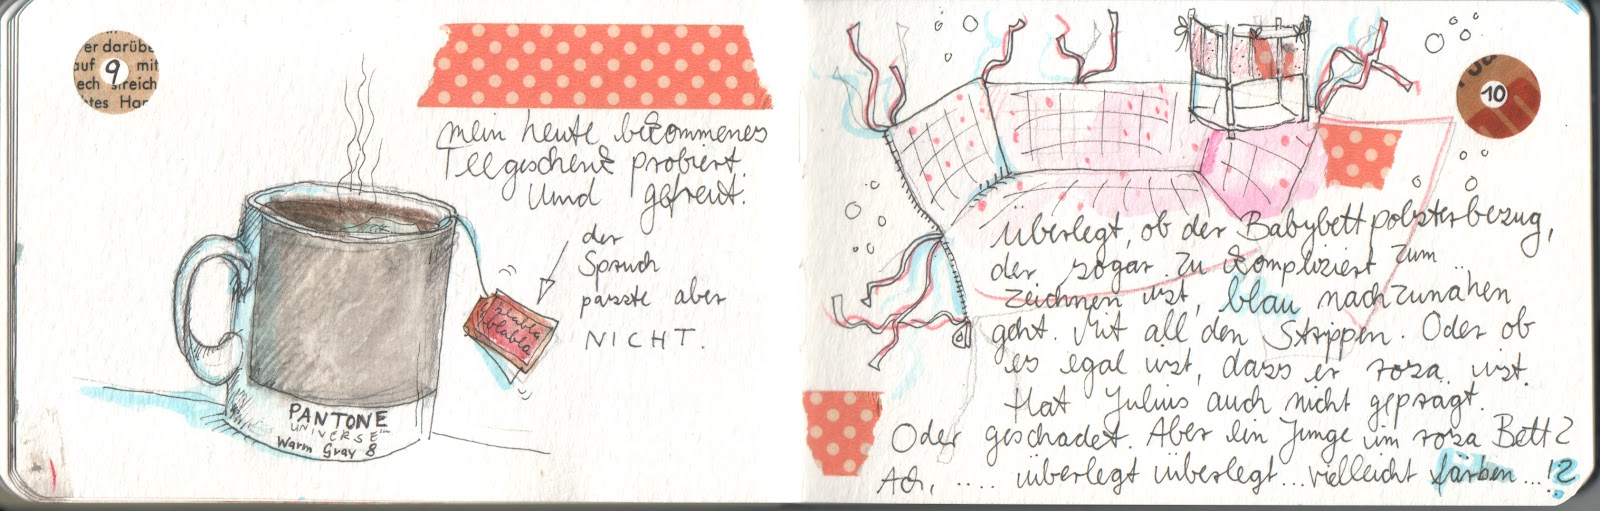 er darübe
auf
mit
ech streich
tes Har
9
mein heute bekommenes
Teegeschenk probiert.
Und gefreut.
der
Spruch
passte aber
NICHT.
blabla
blabla
PANTONE
UNIVERSE™
Warm Gray 8
10
überlegt, ob der Babybettpolsterbezug,
der sogar zu kompliziert zum
zeichnen ist, blau nachzunähen
geht. Mit all den Strippen. Oder ob
es egal ist, dass er rosa ist.
Hat Julius auch nicht geprägt.
Oder geschadet. Aber ein Junge im rosa Bett?
Ach, .... überlegt überlegt... vielleicht färben...!?